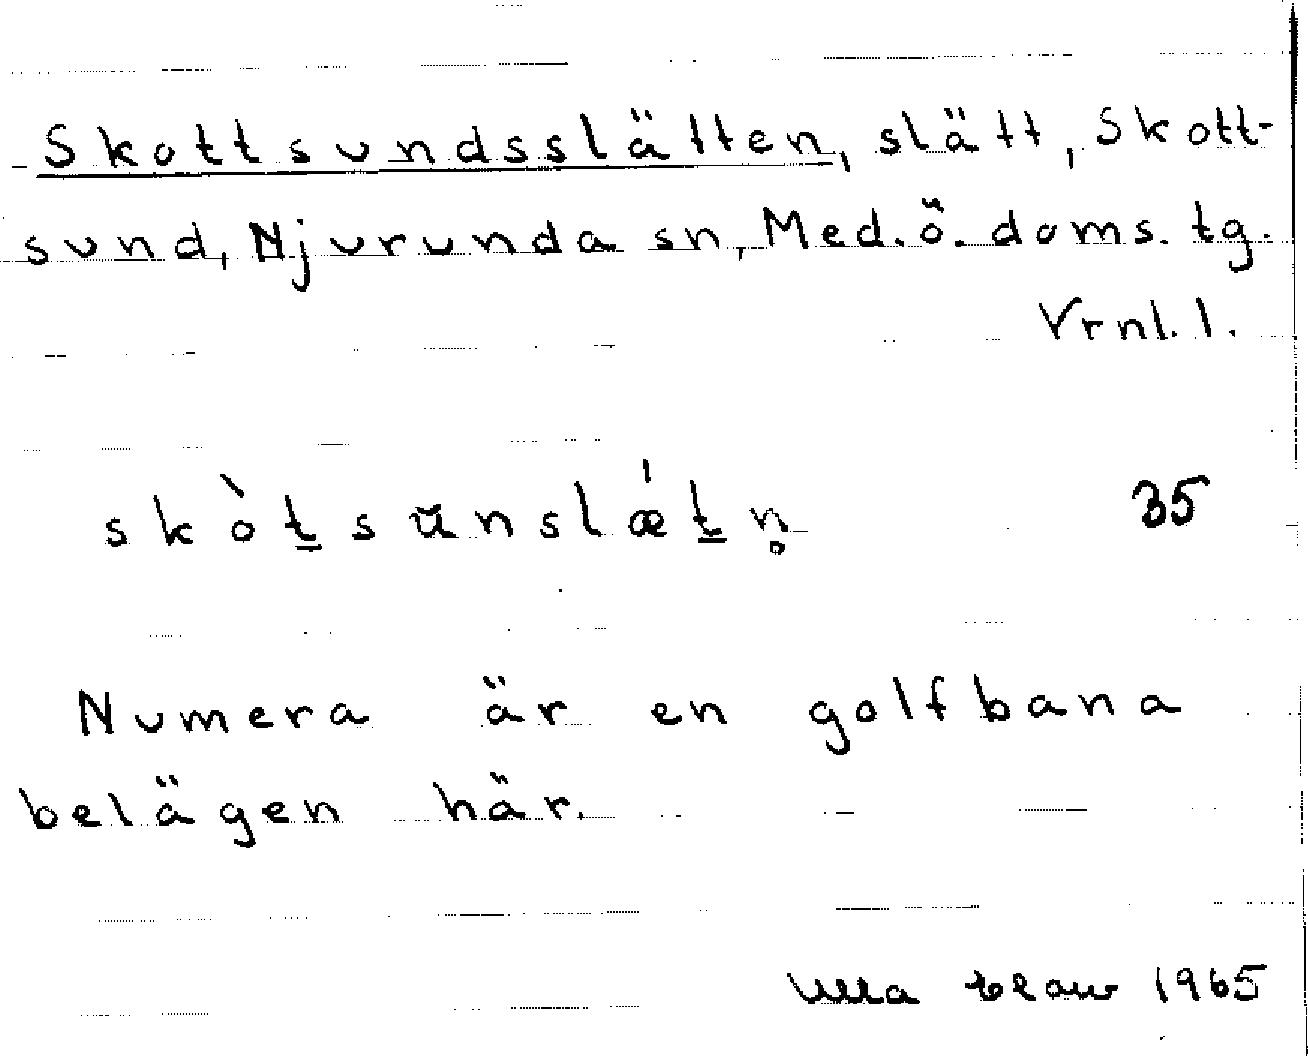 Skottsundsslätten, slätt, Skott-
sund, Njurunda sn, Med. ö. doms. tg.
Vrnl. l.
skòt̲sŭnslǽt̲n̥ 35
Numera är en golfbana
belägen här.
Ulla 1965